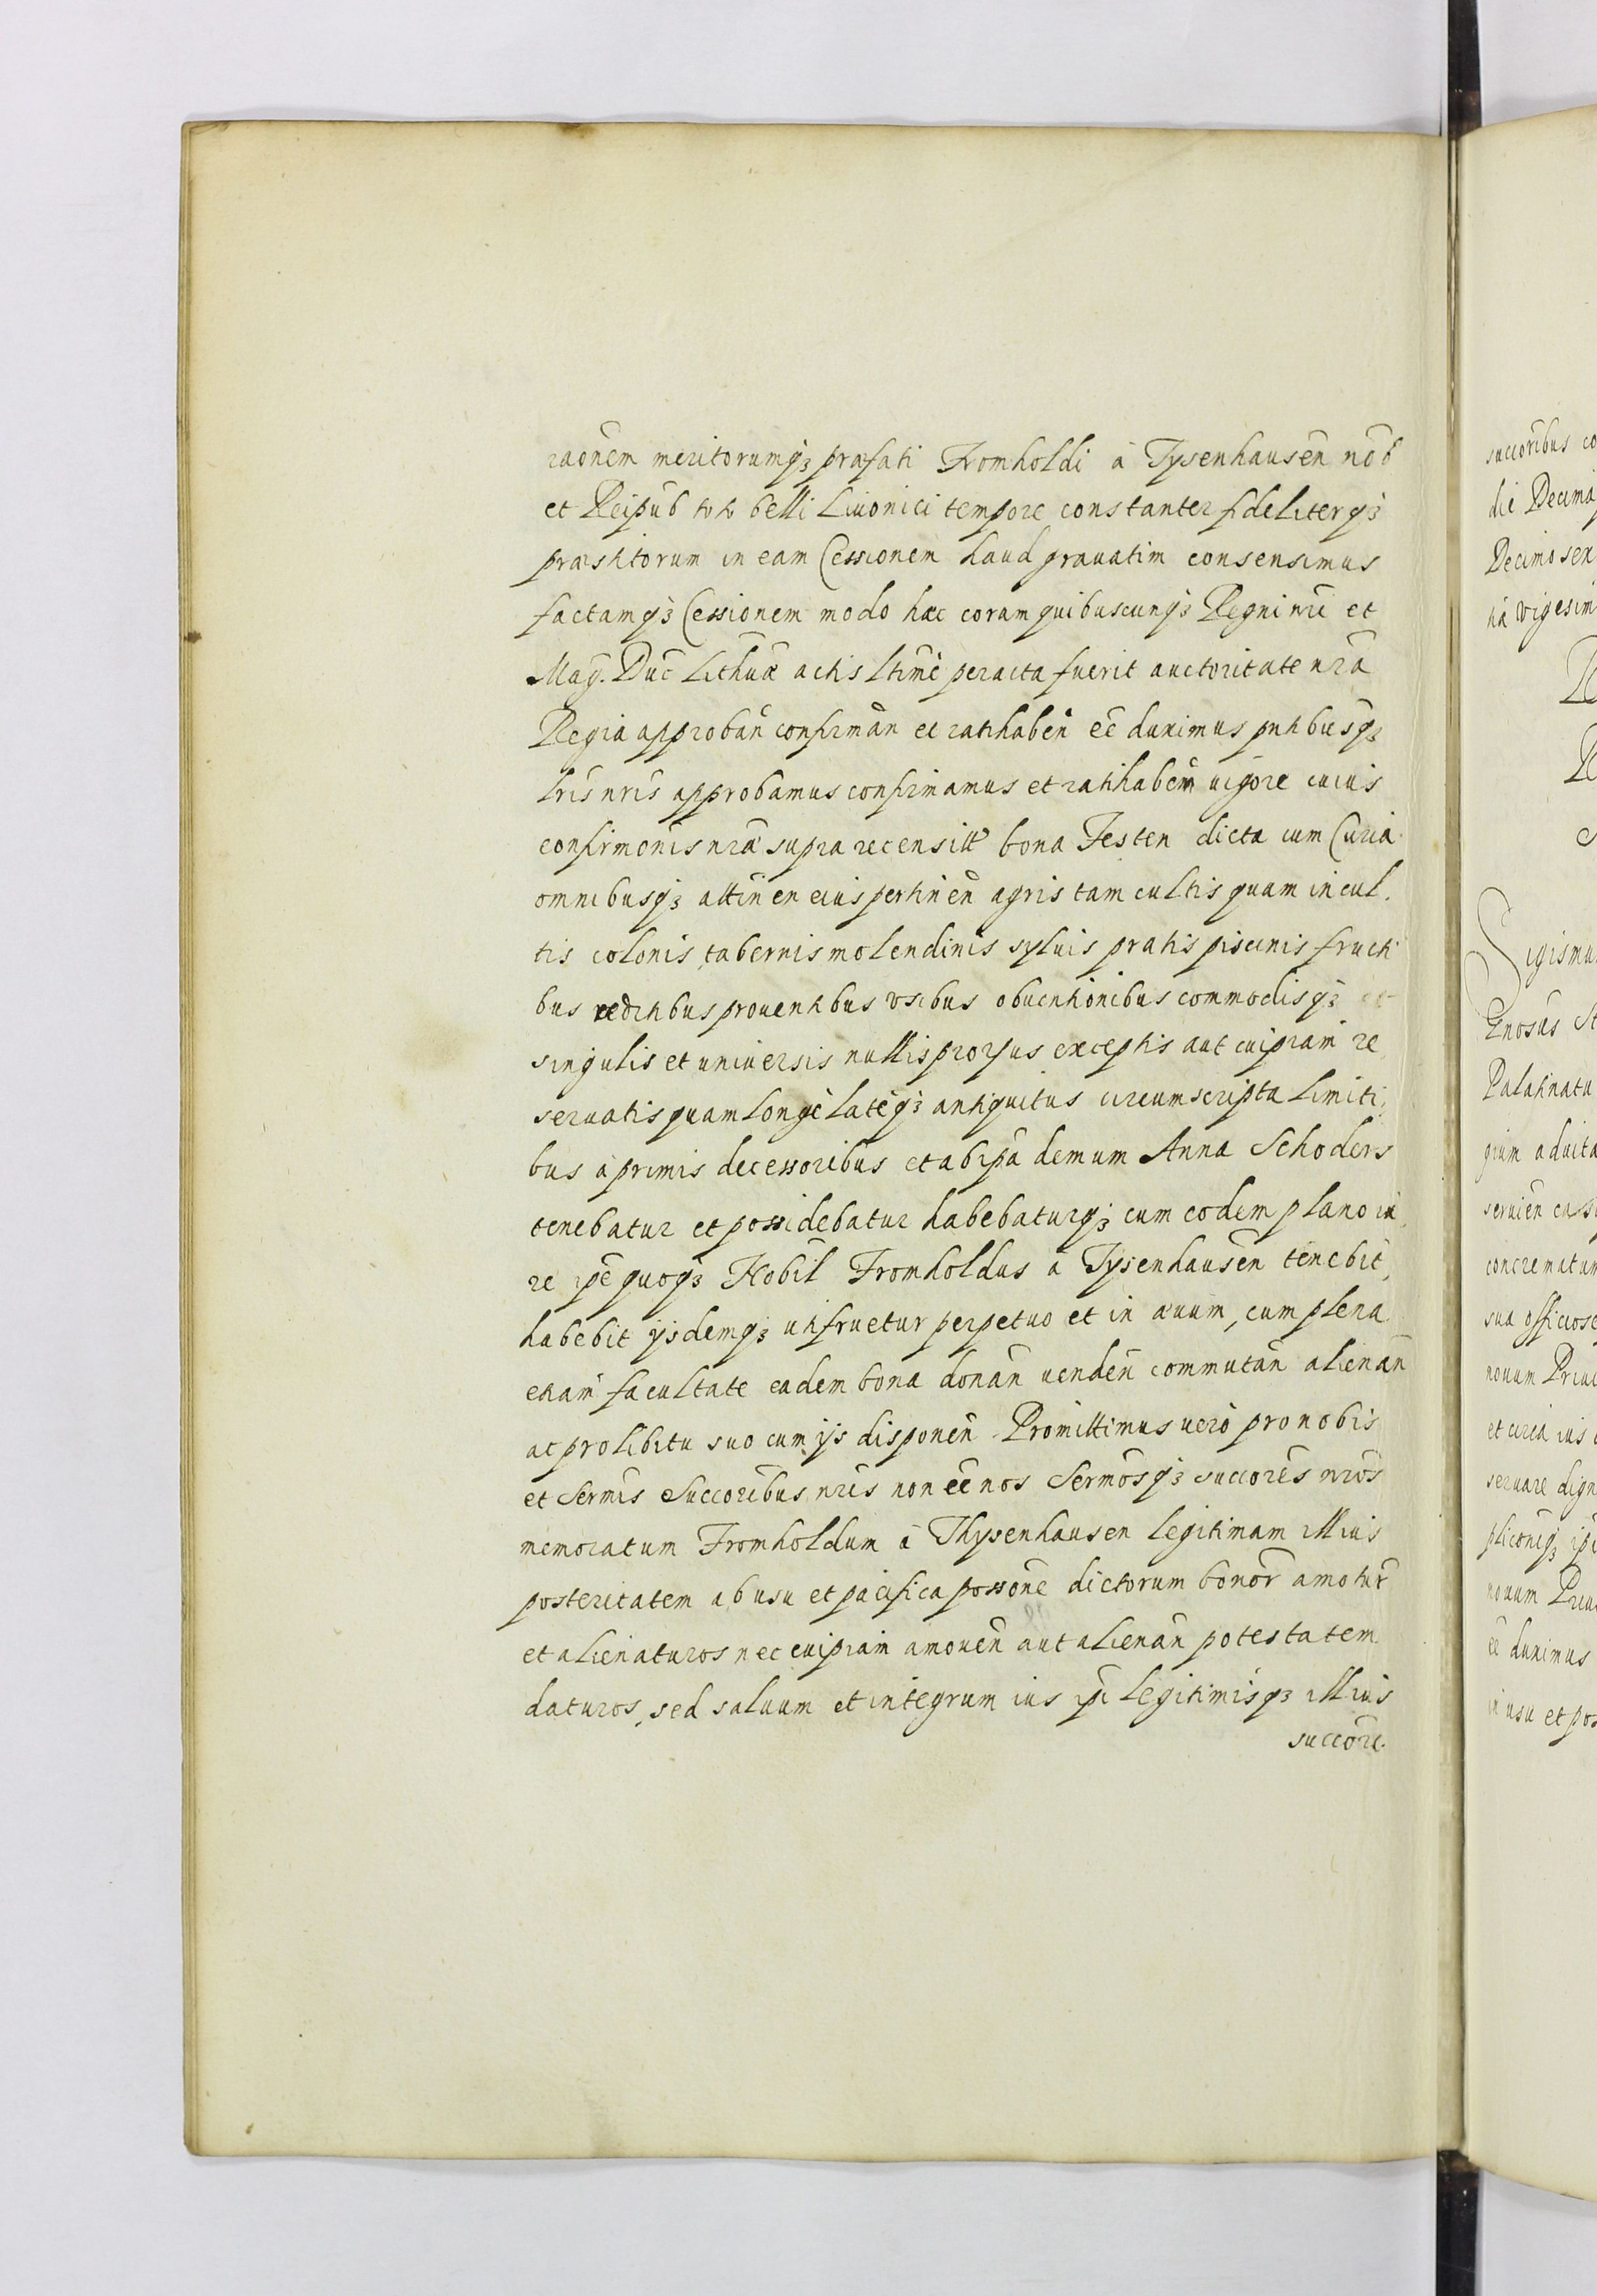 raonem meritorumq3 præfati Fromholdi à Tysenhausen nob
et Reipub toto belli Liuonici tempore constanter fideliterq3
præstitorum in eam Cessionem haud grauatim consensimus
factamq3 Cessionem modo hæc coram quibuscunq3 Regni nri et
Mag. Duc Lithuæ actis ltimè peracta fuerit auctoritate nra
Regia approban confirman et ratihaben eē duximus pntibusq3
lris nris approbamus confirmamus et ratihabem uigore cuius
confirmonis nræ supra recensitt bona Festen dicta cum Curia
omnibusq3 attinen eius pertinen agris tam cultis quam incul.
tis colonis, tabernis molendinis syluis pratis piscinis fructi
bus reditibus prouentibus vsibus obuentionibus commodisq3 et
singulis et universis nullis prorsus exceptis aut cuipiam re
seruatis quam longè latèq3 antiquitus circumscripta limiti,
bus à primis decessoribus et ab ipa demum Anna Schoders
tenebatur et possidebatur habebaturq3 cum eodem plano iu
re ipe quoq3 Nobil Fromholdus a Tysenhausen tenebit,
habebit ijsdemq3 utifruetur perpetuo et in æuum, cum plena
etiam facultate eadem bona donan uenden commutan alienan
ac pro libitu suo cum ijs disponen Promittimus uerò pro nobis
et Sermis Succoribus nris non eē nos Sermosq3 succores nros
memoratum Fromholdum à Thysenhausen legitimam illius
posteritatem ab usu et pacifica possone dictorum bonor amotur
et alienaturos nec cuipiam amouen aut alienan potestatem
daturos, sed saluum et integrum ius ipi legitimisq3 illius
succori.
succoribus co
die Decima
Decimo sex
tia vigesim
R
R
S
Sigismu
Enosus St
Palatinatu
gium aduita
seruien
concrematum
sua officiose
nouum Priui
et circa ius
seruare dign
pliconiq3 ipi
nouum Priu
eē duximus
in usu et pos